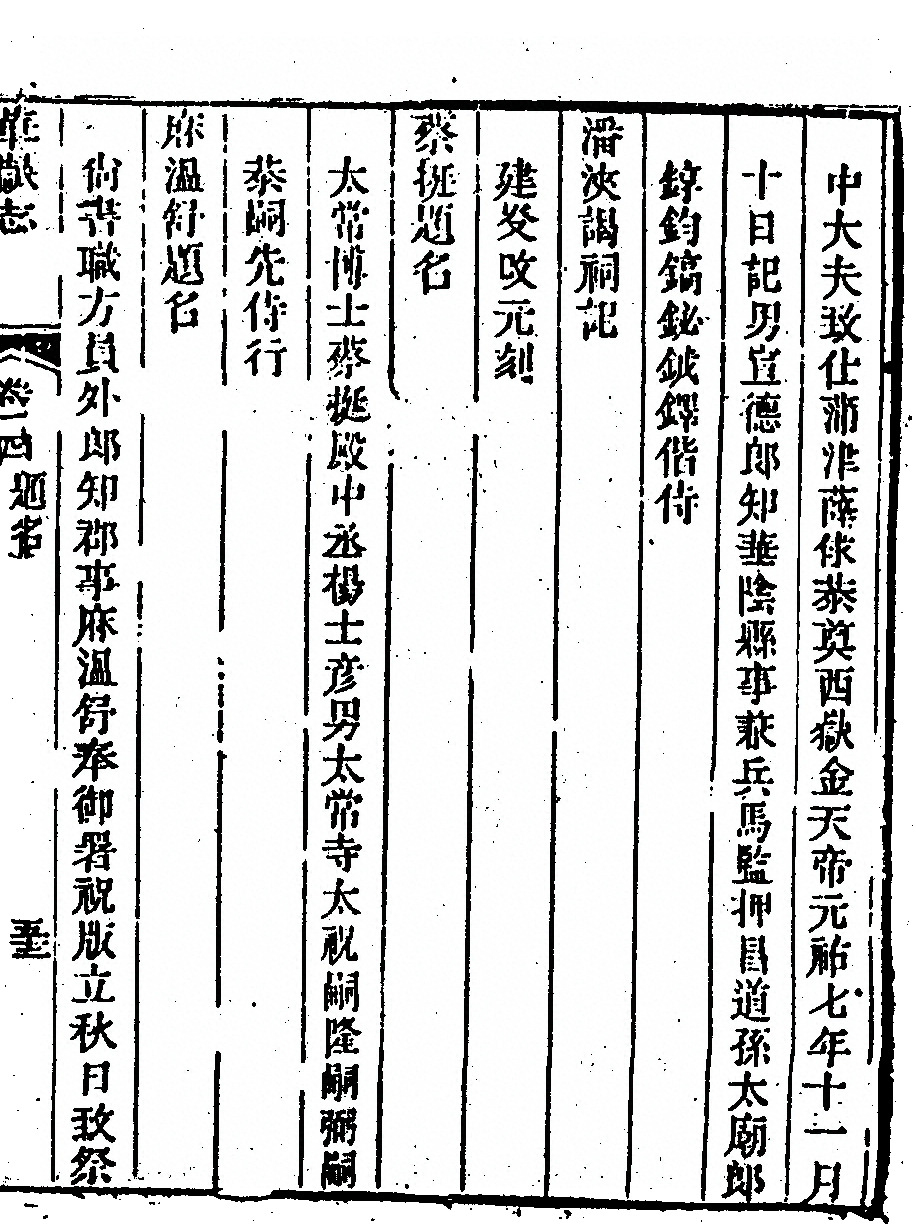 中大夫致仕蒲津薛俅恭奠西嶽金天帝元祐七年十一月
十日記男宣德郎知華陰縣事兼兵馬監押昌道孫太廟郎
錞鈞鎬鉍鉞鐸偕侍
潘浹謁祠記
建炎改元刻
蔡挺題名
太常博士蔡挺殿中丞楊士彥男太常寺太祝嗣隆嗣弼嗣
恭嗣先侍行
麻溫舒題名
尚書職方員外郎知郡事麻溫舒奉御署祝版立秋日致祭
華嶽志
卷四
題名